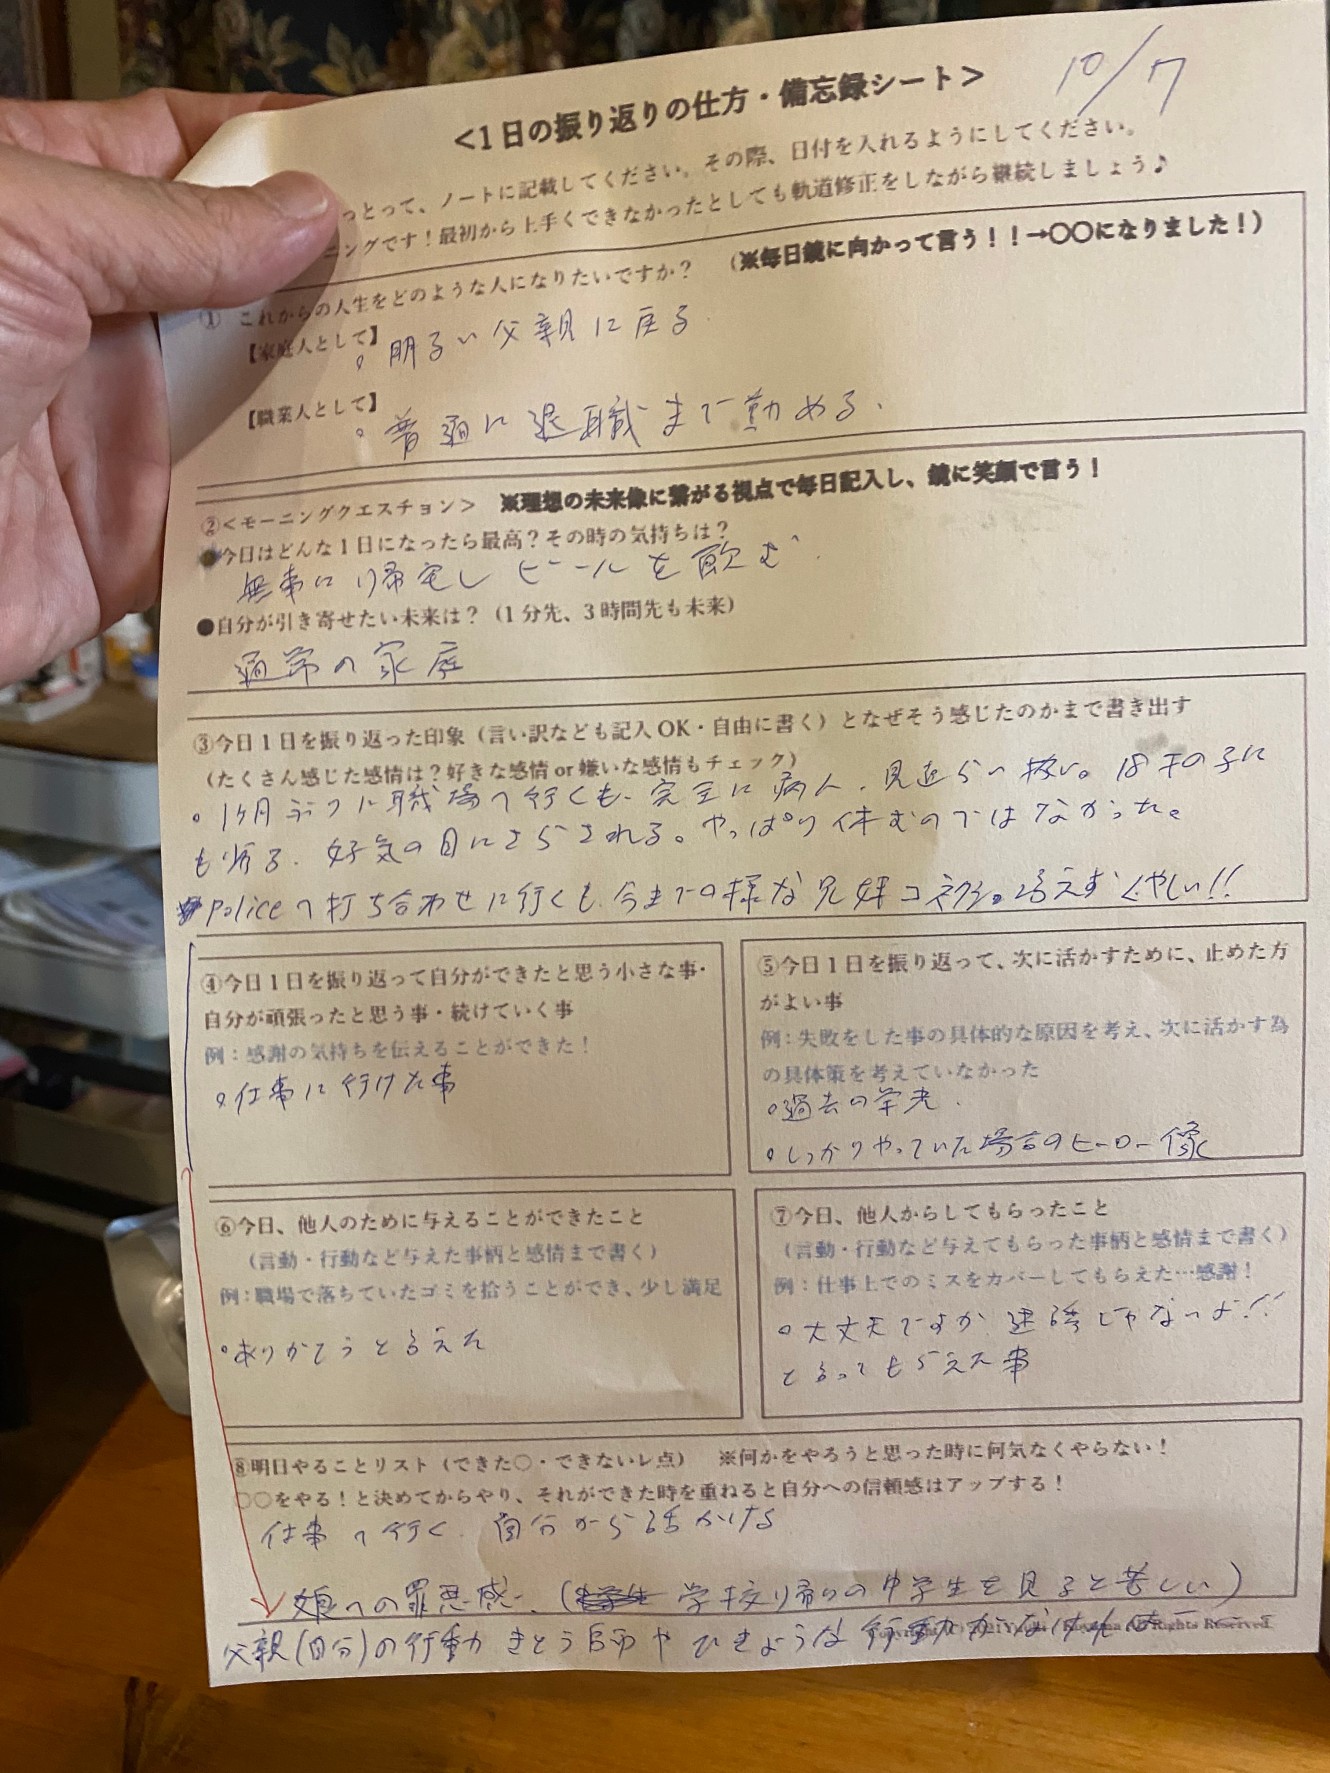 10/7
<1日の振り返りの仕方・備忘録シート>
っとって、ノートに記載してください。その際、日付を入れるようにしてください。
ニングです！最初から上手くできなかったとしても軌道修正をしながら継続しましょう♪
① これからの人生をどのような人になりたいですか？ （※毎日鏡に向かって言う！！→〇〇になりました！）
【家庭人として】
。明るい父親に戻る
【職業人として】
。普通に退職まで勤める.
②<モーニングクエスチョン> ※理想の未来像に繋がる視点で毎日記入し、鏡に笑顔で言う！
●今日はどんな1日になったら最高？その時の気持ちは？
無事に帰宅しビールを飲む.
●自分が引き寄せたい未来は？（1分先、3時間先も未来）
通常の家庭
③今日1日を振り返った印象（言い訳なども記入OK・自由に書く）となぜそう感じたのかまで書き出す
（たくさん感じた感情は？好きな感情or嫌いな感情もチェック）
。1ヶ月ぶりに職場へ行くも、完全に病人、見習い扱い。18才の子に
も劣る、好気の目にさらされる。やっぱり休むのではなかった。
Policeへ打ち合わせに行くも、今までの様な くやしい!!
④今日1日を振り返って自分ができたと思う小さな事・
自分が頑張ったと思う事・続けていく事
例：感謝の気持ちを伝えることができた！
。仕事に行けた事
⑤今日1日を振り返って、次に活かすために、止めた方
がよい事
例：失敗をした事の具体的な原因を考え、次に活かす為
の具体策を考えていなかった
。過去の栄光.
。しっかりやっていた場合のヒーロー像
⑥今日、他人のために与えることができたこと
（言動・行動など与えた事柄と感情まで書く）
例：職場で落ちていたゴミを拾うことができ、少し満足
。ありがとうと言えた
⑦今日、他人からしてもらったこと
（言動・行動など与えてもらった事柄と感情まで書く）
例：仕事上でのミスをカバーしてもらえた…感謝！
。大丈夫ですか 迷惑じゃないよ!!
と言ってもらえた事
⑧明日やることリスト（できた〇・できないレ点） ※何かをやろうと思った時に何気なくやらない！
〇〇をやる！と決めてからやり、それができた時を重ねると自分への信頼感はアップする！
仕事へ行く. 自分から話かける
娘への罪悪感、( 学校帰りの中学生を見ると苦しい)
父親(自分)の行動 きとう師や ひきょうな行動がなければ
Rights Reserved.